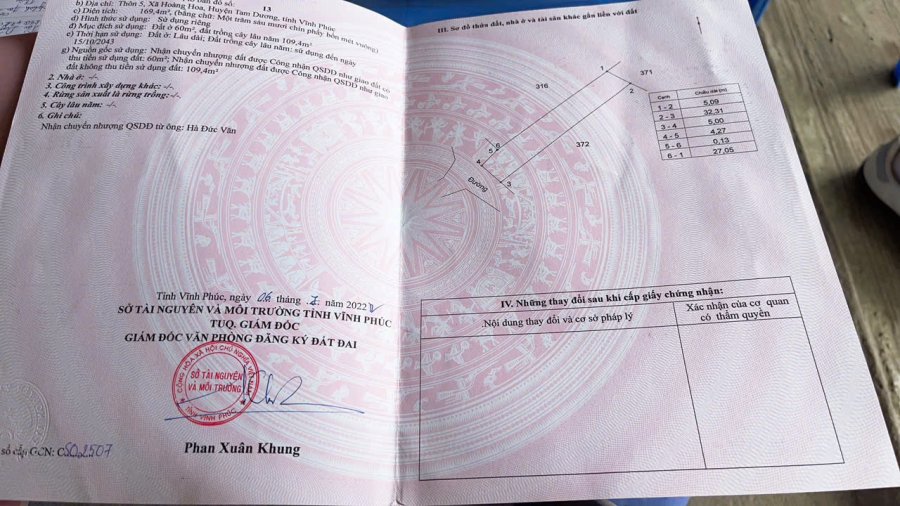 13
b) Địa chỉ: Thôn 5, Xã Hoàng Hoa, Huyện Tam Dương, tỉnh Vĩnh Phúc
c) Diện tích: 169,4m², (bằng chữ: Một trăm sáu mươi chín phẩy bốn mét vuông)
d) Hình thức sử dụng: Sử dụng riêng
đ) Mục đích sử dụng: Đất ở 60m², đất trồng cây lâu năm 109,4m²
e) Thời hạn sử dụng: Đất ở: Lâu dài; Đất trồng cây lâu năm: sử dụng đến ngày
15/10/2043
g) Nguồn gốc sử dụng: Nhận chuyển nhượng đất được Công nhận QSDĐ như giao đất có
thu tiền sử dụng đất: 60m²; Nhận chuyển nhượng đất được Công nhận QSDĐ như giao
đất không thu tiền sử dụng đất: 109,4m²
2. Nhà ở: -/-
3. Công trình xây dựng khác: -/-
4. Rừng sản xuất là rừng trồng: -/-
5. Cây lâu năm: -/-
6. Ghi chú:
Nhận chuyển nhượng QSDĐ từ ông: Hà Đức Văn
Tỉnh Vĩnh Phúc, ngày 06 tháng 7 năm 2022
SỞ TÀI NGUYÊN VÀ MÔI TRƯỜNG TỈNH VĨNH PHÚC
TUQ. GIÁM ĐỐC
GIÁM ĐỐC VĂN PHÒNG ĐĂNG KÝ ĐẤT ĐAI
CỘNG HÒA XÃ HỘI CHỦ NGHĨA
SỞ TÀI NGUYÊN
VÀ MÔI TRƯỜNG
TỈNH VĨNH PHÚC
Phan Xuân Khung
số cấp GCN: CS02507
III. Sơ đồ thửa đất, nhà ở và tài sản khác gắn liền với đất
1
371
316
2
372
6
5
4
3
Đường
Cạnh Chiều dài (m)
1 - 2 5,09
2 - 3 32,31
3 - 4 5,00
4 - 5 4,27
5 - 6 0,13
6 - 1 27,05
IV. Những thay đổi sau khi cấp giấy chứng nhận:
Nội dung thay đổi và cơ sở pháp lý
Xác nhận của cơ quan
có thẩm quyền